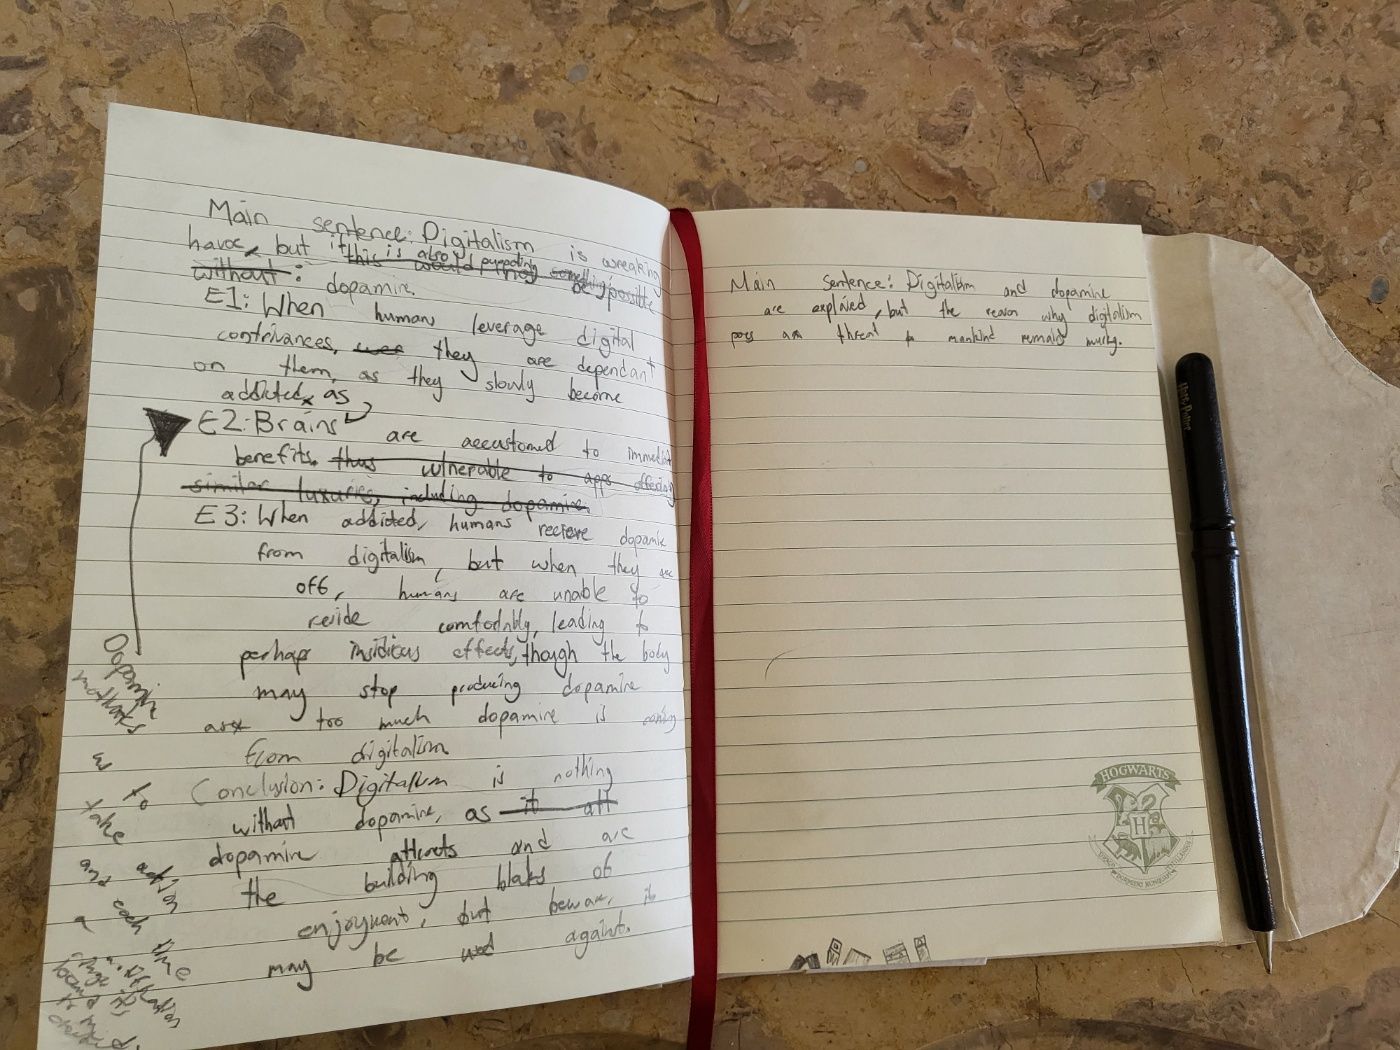 Main sentence: Digitalism is wreaking
havoc, but it this is also pumping
without: dopamine. would be possible
E1: When humans leverage digital
contrivances, they are dependant
on them, as they slowly become
addicted as
E2: Brains are accustomed to
benefits. thus vulnerable to apps offering
similar luxuries, including dopamine.
E3: When addicted, humans recieve
from digitalism, but when they are
off, humans are unable to
reside comfortably, leading to
perhaps insidious effects, though the body
may stop producing dopamine
as too much dopamine is
from digitalism
Conclusion: Digitalism is nothing
without dopamine, as it all
dopamine attracts and are
the building of
enjoyment, but
may be used against.
Dopamine
motivates
us to
take action
and each time
a
Main sentence: Digitalism and dopamine
are explained, but the reason why digitalism
a threat to mankind remains murky.
Harry Potter
HOGWARTS
H